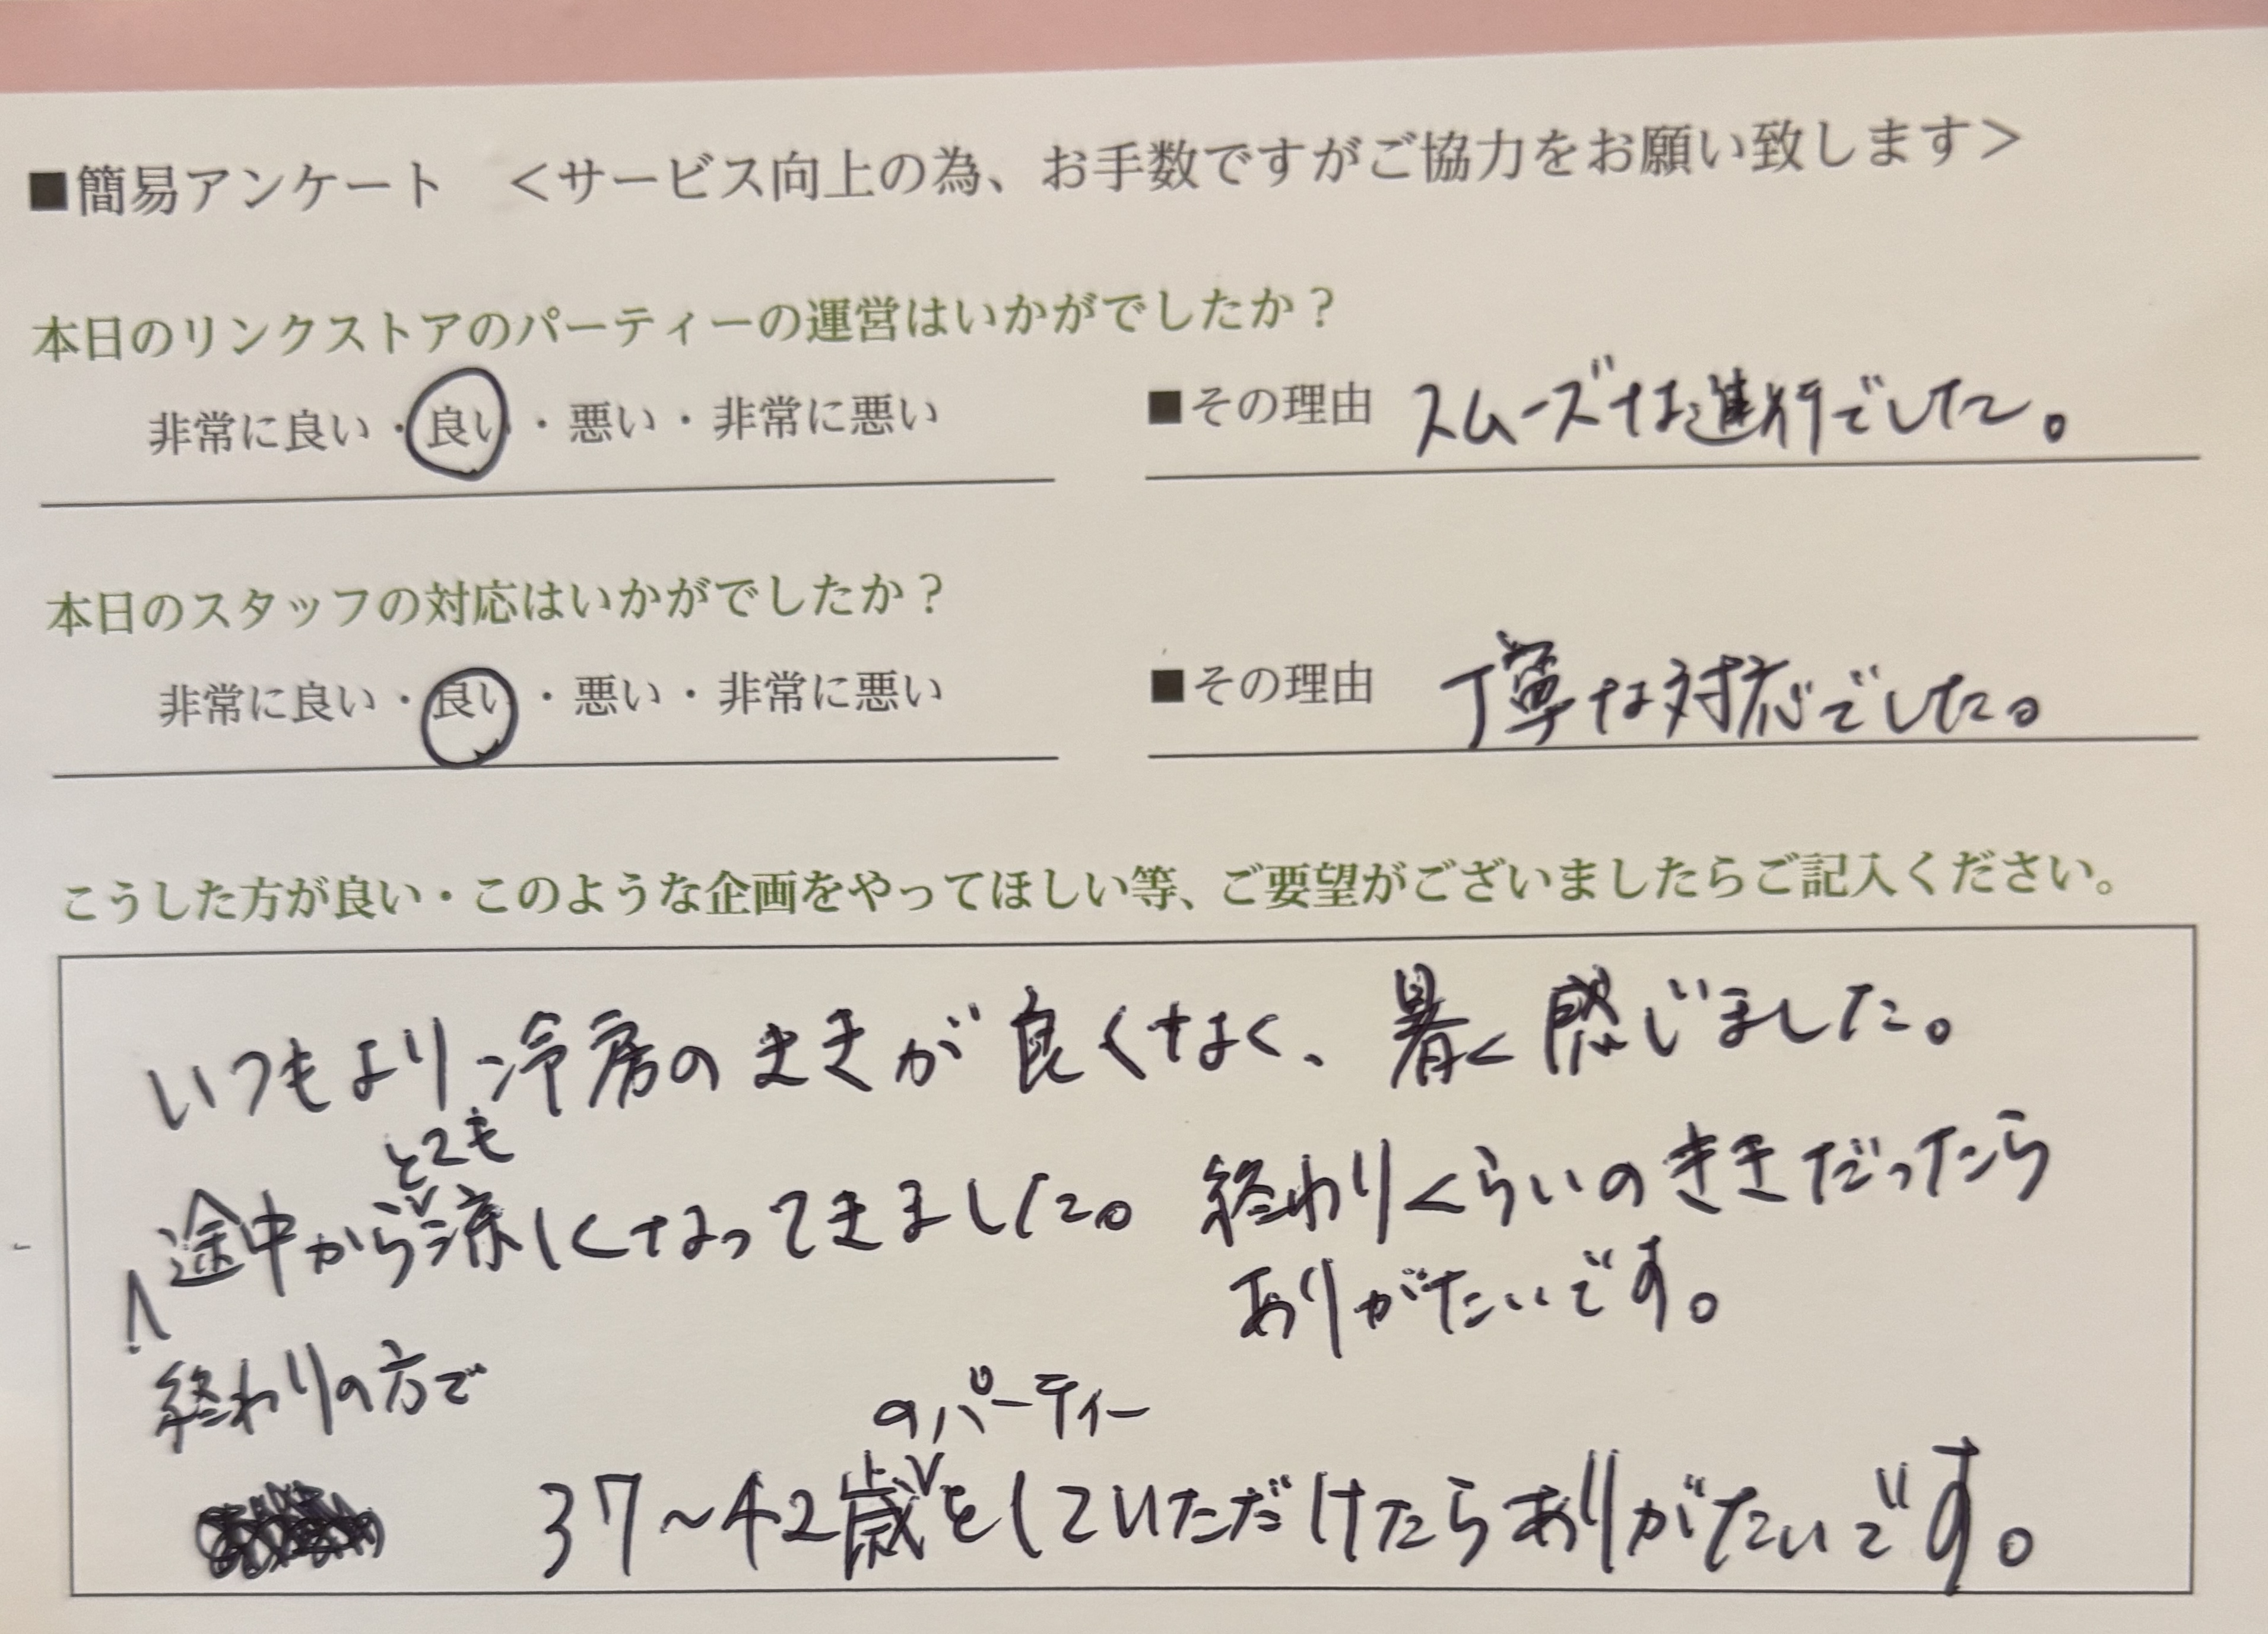 ■簡易アンケート　＜サービス向上の為、お手数ですがご協力をお願い致します＞
本日のリンクストアのパーティーの運営はいかがでしたか？
非常に良い・良い・悪い・非常に悪い　■その理由　スムーズな進行でした。
本日のスタッフの対応はいかがでしたか？
非常に良い・良い・悪い・非常に悪い　■その理由　丁寧な対応でした。
こうした方が良い・このような企画をやってほしい等、ご要望がございましたらご記入ください。
いつもより冷房のききが良くなく、暑く感じました。
とても
途中から涼しくなってきました。終わりくらいのききだったら
ありがたいです。
終わりの方で
のパーティー
37～42歳をしていただけたらありがたいです。